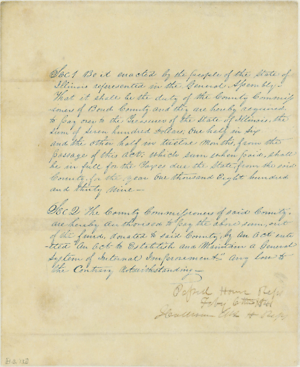 Sec 1 Be it enacted by the people of the State of
Illinois represented in the General Assembly
That it shall be the duty of the County Commiss
ioners of Bond County and they are hereby required
to pay over to the Treasurer of the State of Illinois, the
sum of seven hundred dollars, one half in six
and the other half in twelve months, from the
passage of this act. Which sum when paid, shall
be in full for the Taxes due the State from the said
County for the year One thousand Eight hundred
and thirty nine
Sec 2. The County Commissioners of said County,
are hereby authorised to pay the above sum, out
of the fund, donated to said County, by An Act enti
tled An Act to Establish and Maintain a General
System of Internal Improvement" any law to
the Contrary Notwithstanding
Passed House Reps
Feby